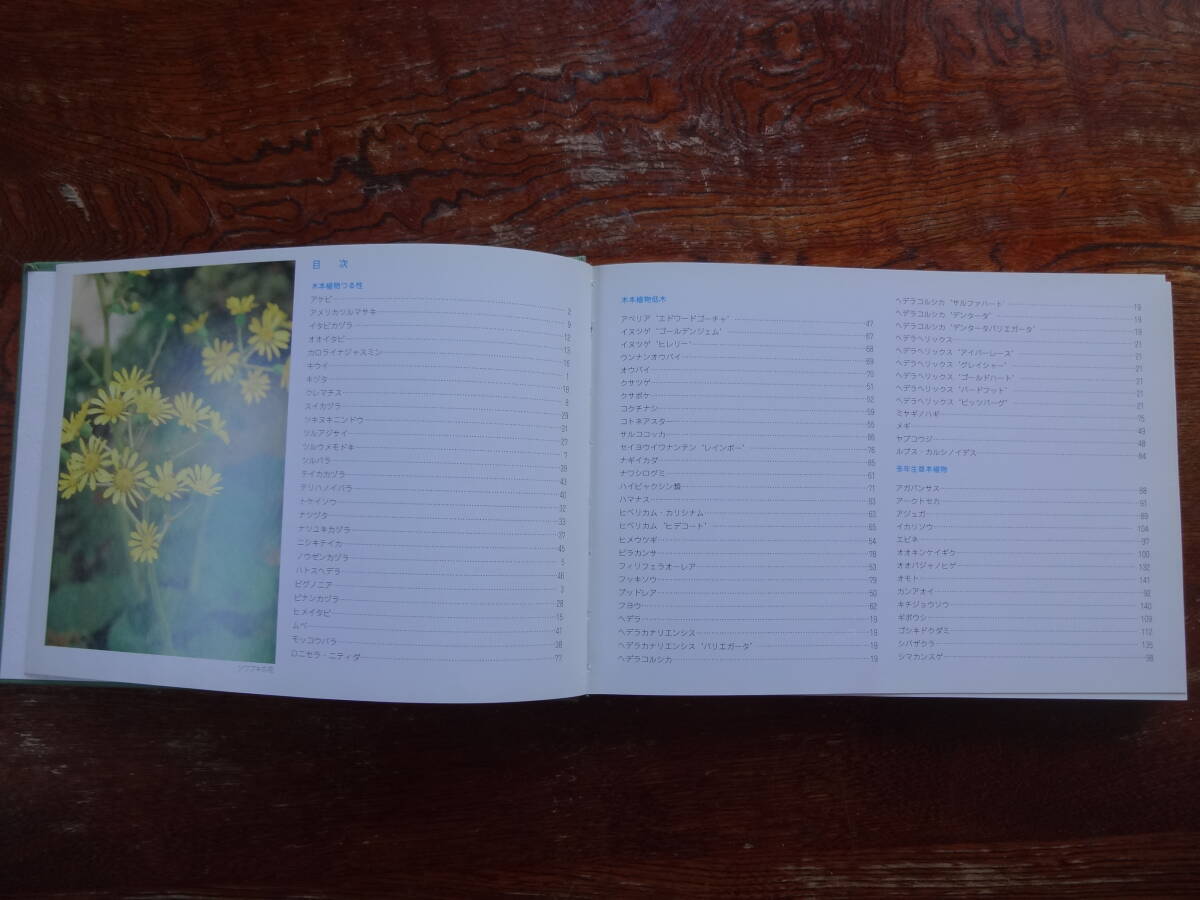 目次
木本植物つる性
アケビ 2
アメリカツルマサキ 9
イタビカヅラ 12
オオイタビ 13
カロライナジャスミン 16
キウイ 1
キヅタ 18
クレマチス 8
スイカヅラ 29
ツキヌキニンドウ 31
ツルアジサイ 27
ツルウメモドキ 7
ツルバラ 39
テイカカヅラ 43
テリハノイバラ 40
トケイソウ 32
ナツヅタ 33
ナリユキカヅラ 37
ニシキテイカ 45
ノウゼンカヅラ 5
ハトスヘデラ 46
ビグノニア 3
ビナンカヅラ 28
ヒメイタビ 15
ムベ 41
モッコウバラ 38
ロニセラ・ニティダ 77
ツワブキの花
木本植物低木
アベリア‘エドワードゴーチャ’ 47
イヌツゲ‘ゴールデンジェム’ 67
イヌツゲ‘ヒレリー’ 68
ウンナンオウバイ 69
オウバイ 70
クサツゲ 51
クサボケ 52
コクチナシ 59
コトネアスター 55
サルココッカ 66
セイヨウイワナンテン‘レインボー’ 76
ナギイカダ 65
ナワシログミ 61
ハイビャクシン類 71
ハマナス 63
ヒペリカム・カリシナム 63
ヒペリカム‘ヒデコート’ 65
ヒメウツギ 54
ピラカンサ 78
フィリフェラオーレア 53
フッキソウ 79
ブッドレア 50
フヨウ 62
ヘデラ 19
ヘデラカナリエンシス 19
ヘデラカナリエンシス‘バリエガータ’ 19
ヘデラコルシカ 19
ヘデラコルシカ‘サルファハート’ 19
ヘデラコルシカ‘デンターダ’ 19
ヘデラコルシカ‘デンタータバリエガータ’ 19
ヘデラヘリックス 21
ヘデラヘリックス‘アイバーレース’ 21
ヘデラヘリックス‘グレイシャー’ 21
ヘデラヘリックス‘ゴールドハート’ 21
ヘデラヘリックス‘バードフット’ 21
ヘデラヘリックス‘ピッツバーグ’ 21
ミヤギノハギ 75
メギ 49
ヤブコウジ 48
ルブス・カルシノイデス 64
多年生草本植物
アガパンサス 88
アークトセカ 81
アジュガ 89
イカリソウ 104
エビネ 97
オオキンケイギク 100
オオバジャノヒゲ 132
オモト 141
カンアオイ 92
キチジョウソウ 140
ギボウシ 109
ゴシキドクダミ 112
シバザクラ 135
シマカンスゲ 98